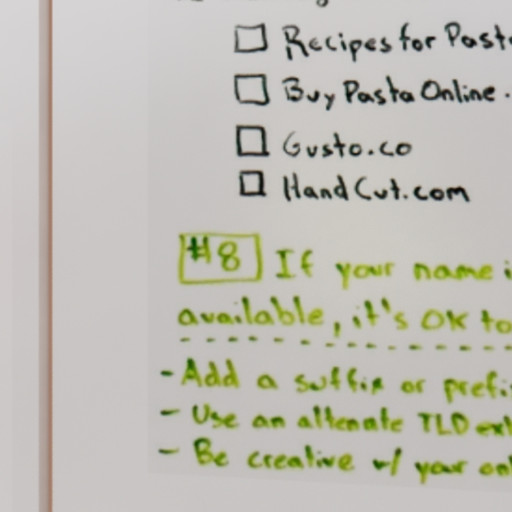 Recipes for Past
Buy Pasta Online.
Gusto.co
HandCut.com
#8 If your name i
available, it's OK to
- Add a suffix or prefi
- Use an altenate TLD ext
- Be creative w/ your onl